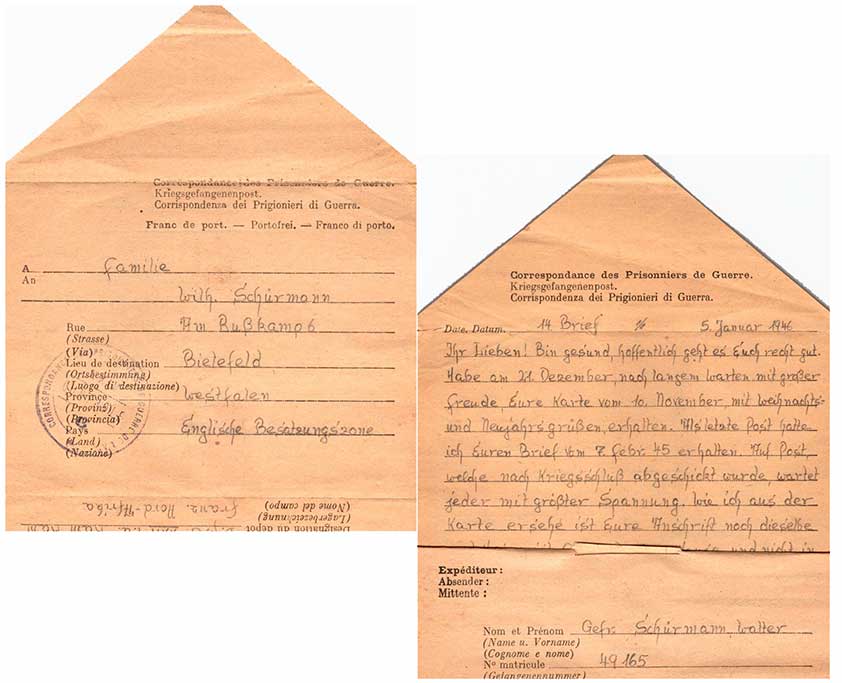 Correspondance des Prisonniers de Guerre.
Kriegsgefangenenpost.
Corrispondenza dei Prigionieri di Guerra.
Franc de port. — Portofrei. — Franco di porto.
A Familie
An
Wilh. Schürmann
Rue Am Bußkamp 6
(Strasse)
(Via)
Lieu de destination Bielefeld
(Ortsbestimmung)
(Luogo di destinazione)
Province Westfalen
(Provinz)
(Provincia)
Pays Englische Besatzungszone
(Land)
(Nazione)
(Nome del campo)
(Lagerbezeichnung) franz. Nord-Afrika
Désignation du dépôt
Correspondance des Prisonniers de Guerre.
Kriegsgefangenenpost.
Corrispondenza dei Prigionieri di Guerra.
Date. Datum. 14. Brief 5. Januar 1946
Ihr Lieben! Bin gesund, hoffentlich geht es Euch recht gut.
Habe am 21. Dezember, nach langem warten mit großer
Freude, Eure Karte vom 10. November, mit Weihnachts-
und Neujahrsgrüßen, erhalten. Als letzte Post hatte
ich Euren Brief vom 7. Febr. 45 erhalten. Auf Post,
welche nach Kriegsschluß abgeschickt wurde, wartet
jeder mit größter Spannung. Wie ich aus der
Karte ersehe ist Eure Anschrift noch dieselbe
und nicht in
Expéditeur :
Absender :
Mittente :
Nom et Prénom Gefr. Schürmann, Walter
(Name u. Vorname)
(Cognome e nome)
No matricule 49165
(Gefangenennummer)